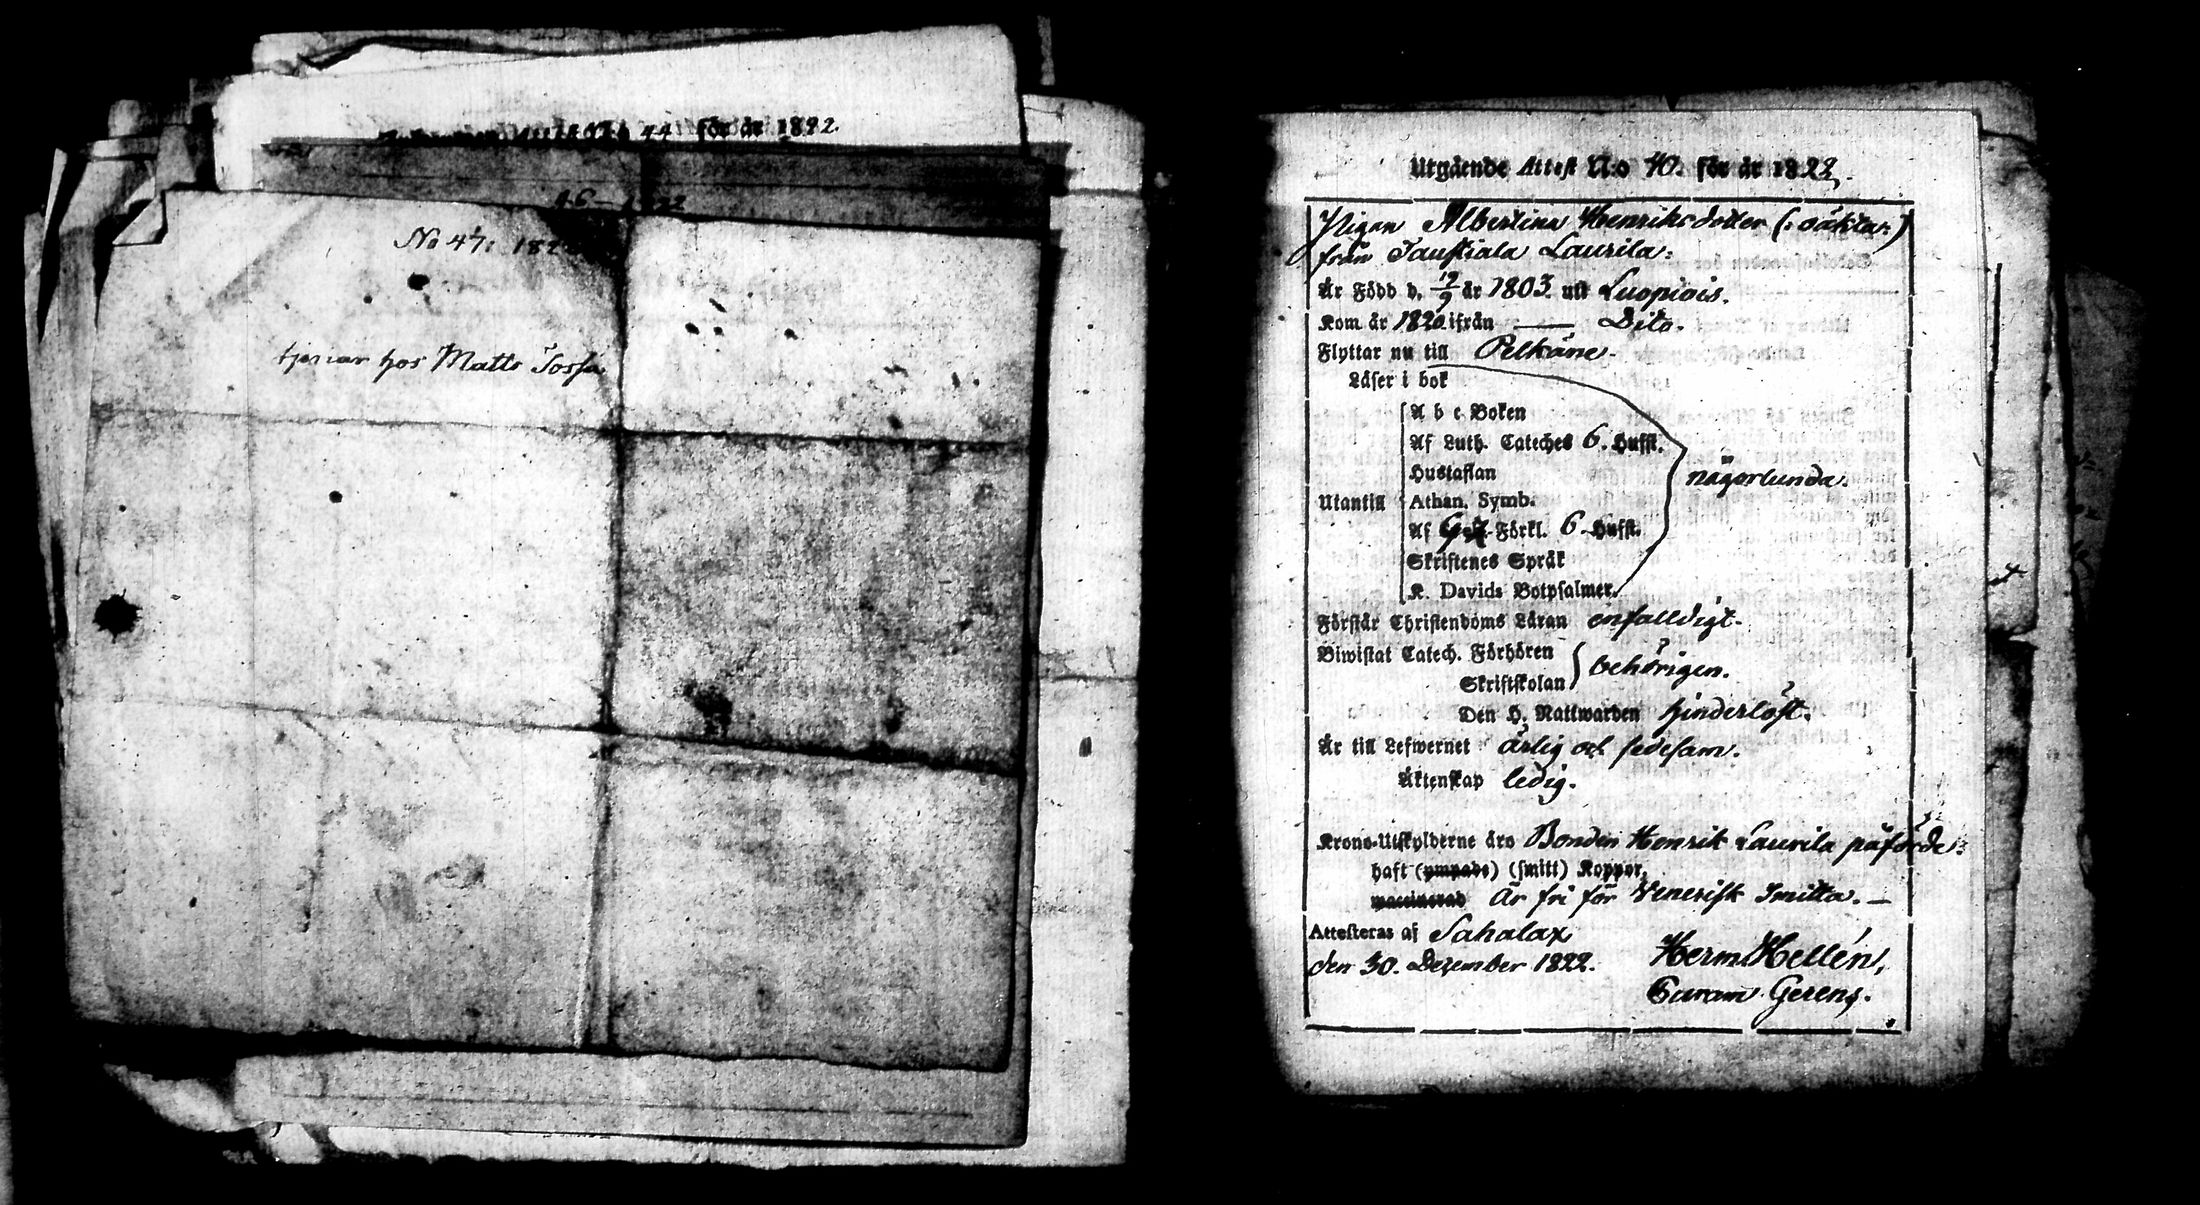 44 för år 1822.
46 — 1822
No 47: 182
tjenar hos Matts Tossa
Utgående Attest N:o 40. för år 1822.
Pigan Albertina Henriksdotter (: oäkta :)
från Taustiala Laurila:
Är Född d. 19/9 år 1803. uti Luopiois.
Kom år 1820 ifrån —— Dito.
Flyttar nu till Pelkäne.
Läser i bok
A b c Boken
Af Luth. Cateches 6. Hufst.
Hustaflan
någorlunda.
Utantill Athan. Symb.
Af Förkl. 6. Hufst.
Skriftenes Språk
K. Davids Botpsalmer.
Förstår Christendoms Läran enfalldigt.
Biwistat Catech. Förhören
behörigen.
Skriftskolan
Den H. Nattwarden hinderlöst.
Är till Lefwernet ärlig och sedesam.
Äktenskap ledig.
Krono-Utskylderne äro Bonden Henrik Laurila påförde:
haft (ympade) (smitt) Koppor,
waccinerad Är fri för Venerisk Smitta. —
Attesteras af Sahalax
den 30. December 1822. Herm Hellén,
Curam Gerens.